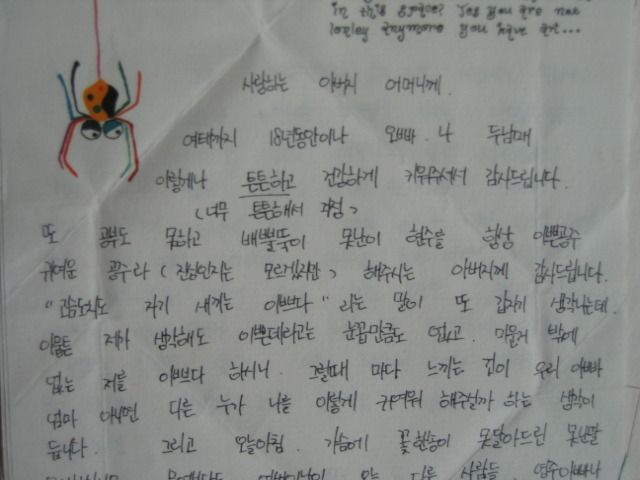 in this space? Yes you are not
lonley anymore you have an...
사랑하는 아버지 어머니께.
여태까지 18년동안이나 오빠. 나 두남매
이렇게나 튼튼하고 건강하게 키워주셔서 감사드립니다.
(너무 튼튼해서 걱정)
또 공부도 못하고 배뿔뚝이 못난이 현수를 항상 이쁜공주
귀여운 공주라 (진심인지는 모르겠지만) 해주시는 아버지께 감사드립니다.
"고슴도치도 자기 새끼는 이쁘다" 라는 말이 또 갑자기 생각나는데.
저가 생각해도 이쁜데라고는 눈꼽만큼도 없고. 미운거 밖에
없는 저를 이쁘다 하시니. 그럴때 마다 느끼는 건이 우리 아빠
엄마 아니면 다른 누가 나를 이렇게 귀여워 해주실까 하는 생각이
듭니다. 그리고 오늘아침. 가슴에 꽃한송이 못달아드린 못난딸
오늘 다른 사람들.